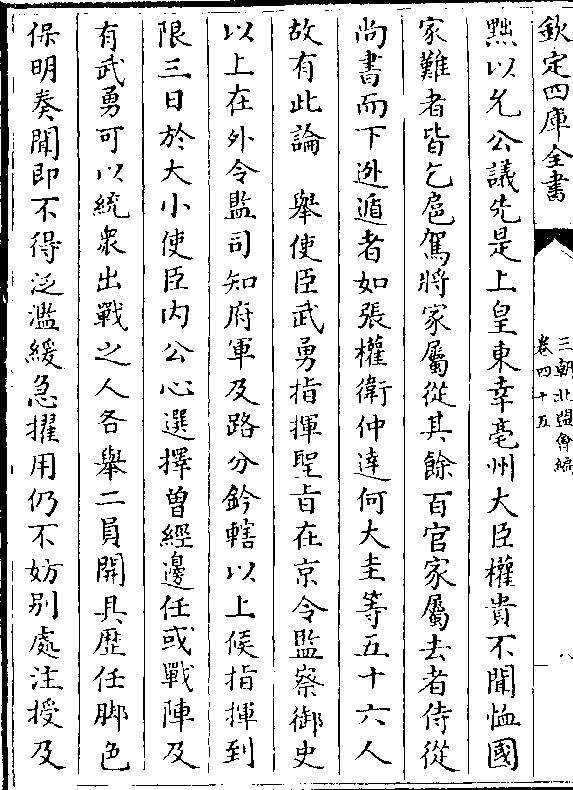 欽定四庫全書
三朝北盟會編
卷四十五
八
黜以允公議先是上皇東幸亳州大臣權貴不聞恤國
家難者皆乞扈駕將家屬從其餘百官家屬去者侍從
尚書而下迯遁者如張權衛仲達何大圭等五十六人
故有此論　舉使臣武勇指揮聖旨在京令監察御史
以上在外令監司知府軍及路分鈐轄以上候指揮到
限三日於大小使臣内公心選擇曾經邊任或戰陣及
有武勇可以統衆出戰之人各舉二員開具歴任脚色
保明奏聞即不得泛濫緩急擢用仍不妨别處注授及